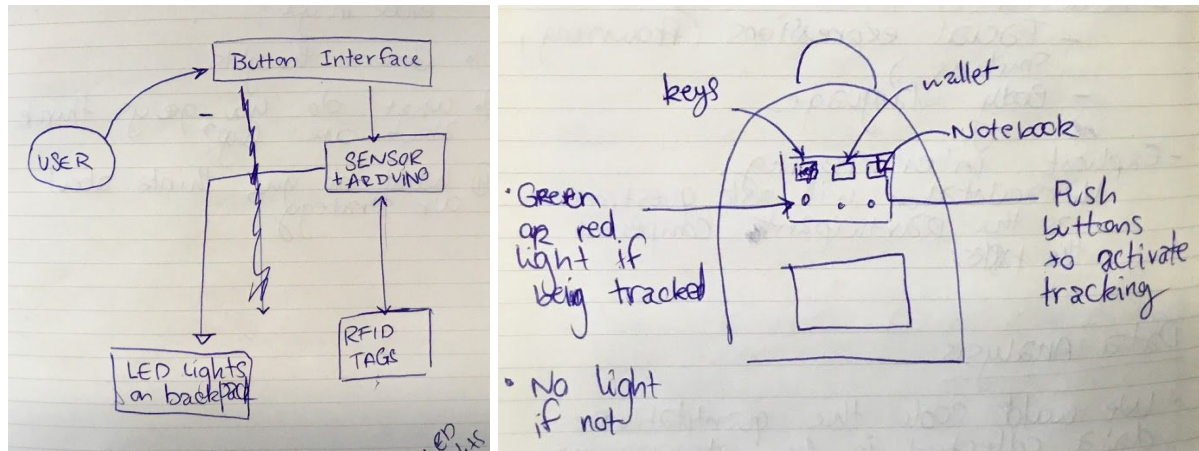 Button Interface
USER
SENSOR
+ARDUINO
RFID
TAGS
LED Lights
on backpack
keys
wallet
Notebook
• Green
or red
light if
being tracked
Push
buttons
to activate
tracking
• No light
if not